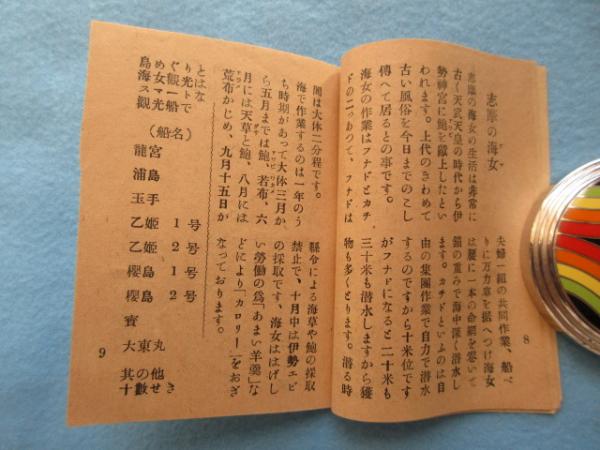 志摩の海女
志摩の海女の生活は非常に
古く天武天皇の時代から伊
勢神宮に鮑を獻上したとい
われます。上代のきわめて
古い風俗を今日までのこし
傳へて居るとの事です。
海女の作業はフナドとカチ
ドの二つあつて、フナドは
夫婦一組の共同作業、船べ
りに万力車を据へつけ海女
は腰に一本の命綱を巻いて
錨の重みで海中深く潜水し
ます。カチドといふのは自
由の集團作業で自力で潜水
するのですから十米位です
がフナドになると二十米も
三十米も潜水しますから獲
物も多くとります。潜る時
8
間は大体二分程です。
海で作業するのは一年のう
ち時期があって大体三月か
ら五月までは鮑、若布、六
月には天草と鮑、八月には
荒布かじめ、九月十五日か
縣令による海草や鮑の採取
禁止で、十月中は伊勢エビ
の採取です、海女ははげし
い勞働の為「あまい羊羹」な
どにより「カロリー」をおぎ
なっております。
とはな
り光トで
ぐ観一船
め女マ光
島海ス觀
(船名)
龍宮
浦島
玉手
乙姫1号
乙姫2号
櫻島1号
櫻島2号
寶
大東丸
其の他
十数せき
9